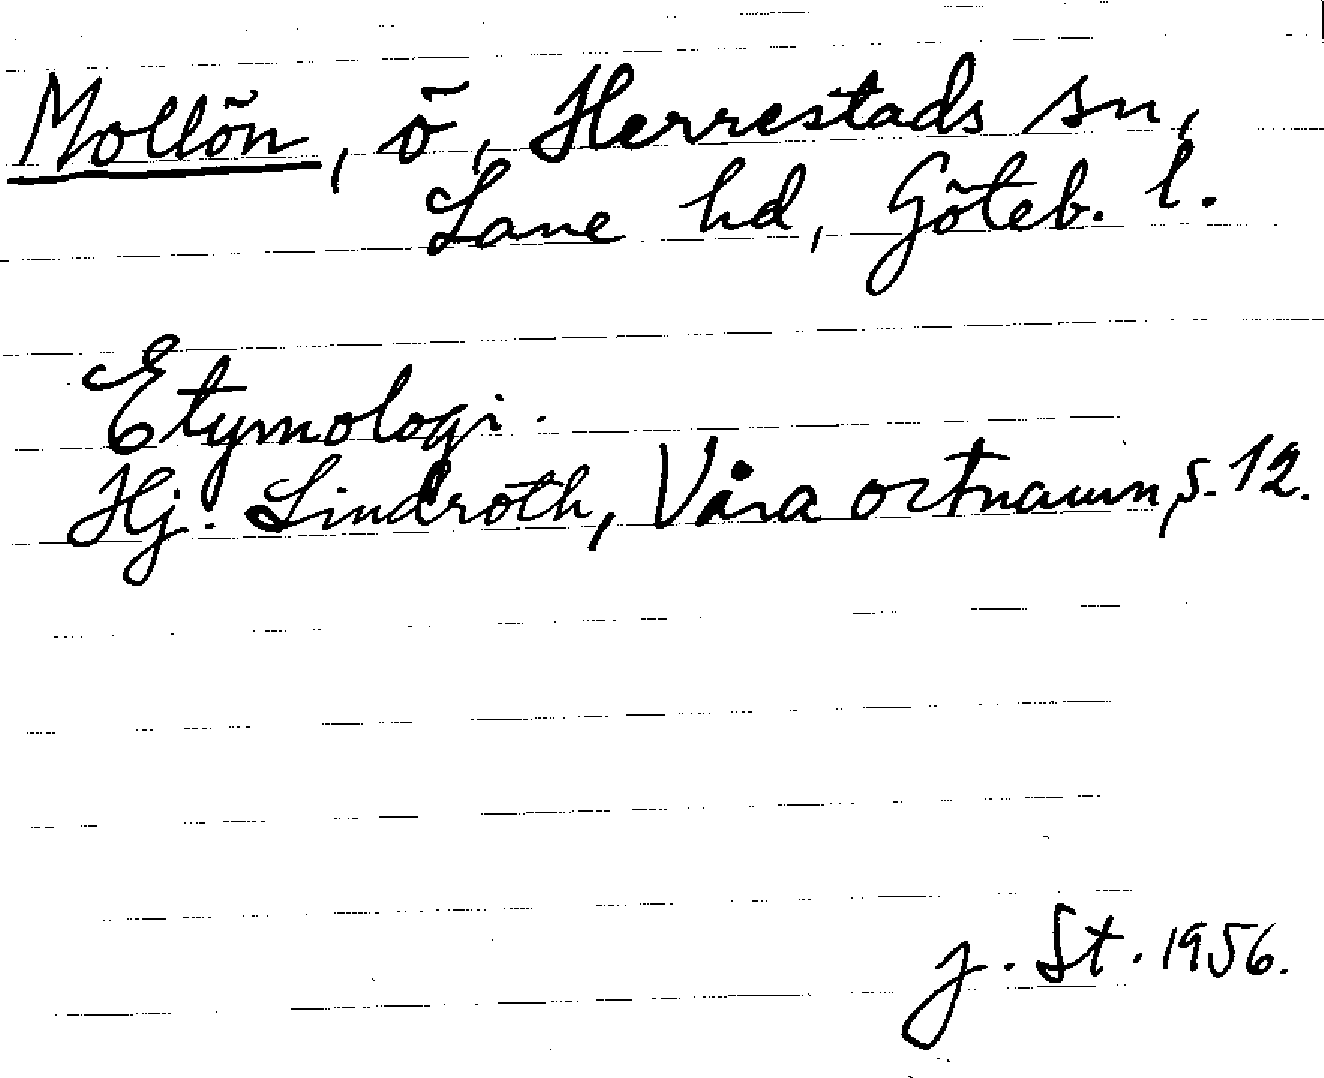 Mollön, ö, Herrestads sn,
Lane hd, Göteb. l.
Etymologi.
Hj. Lindroth, Våra ortnamn, s. 12.
J. St. 1956.